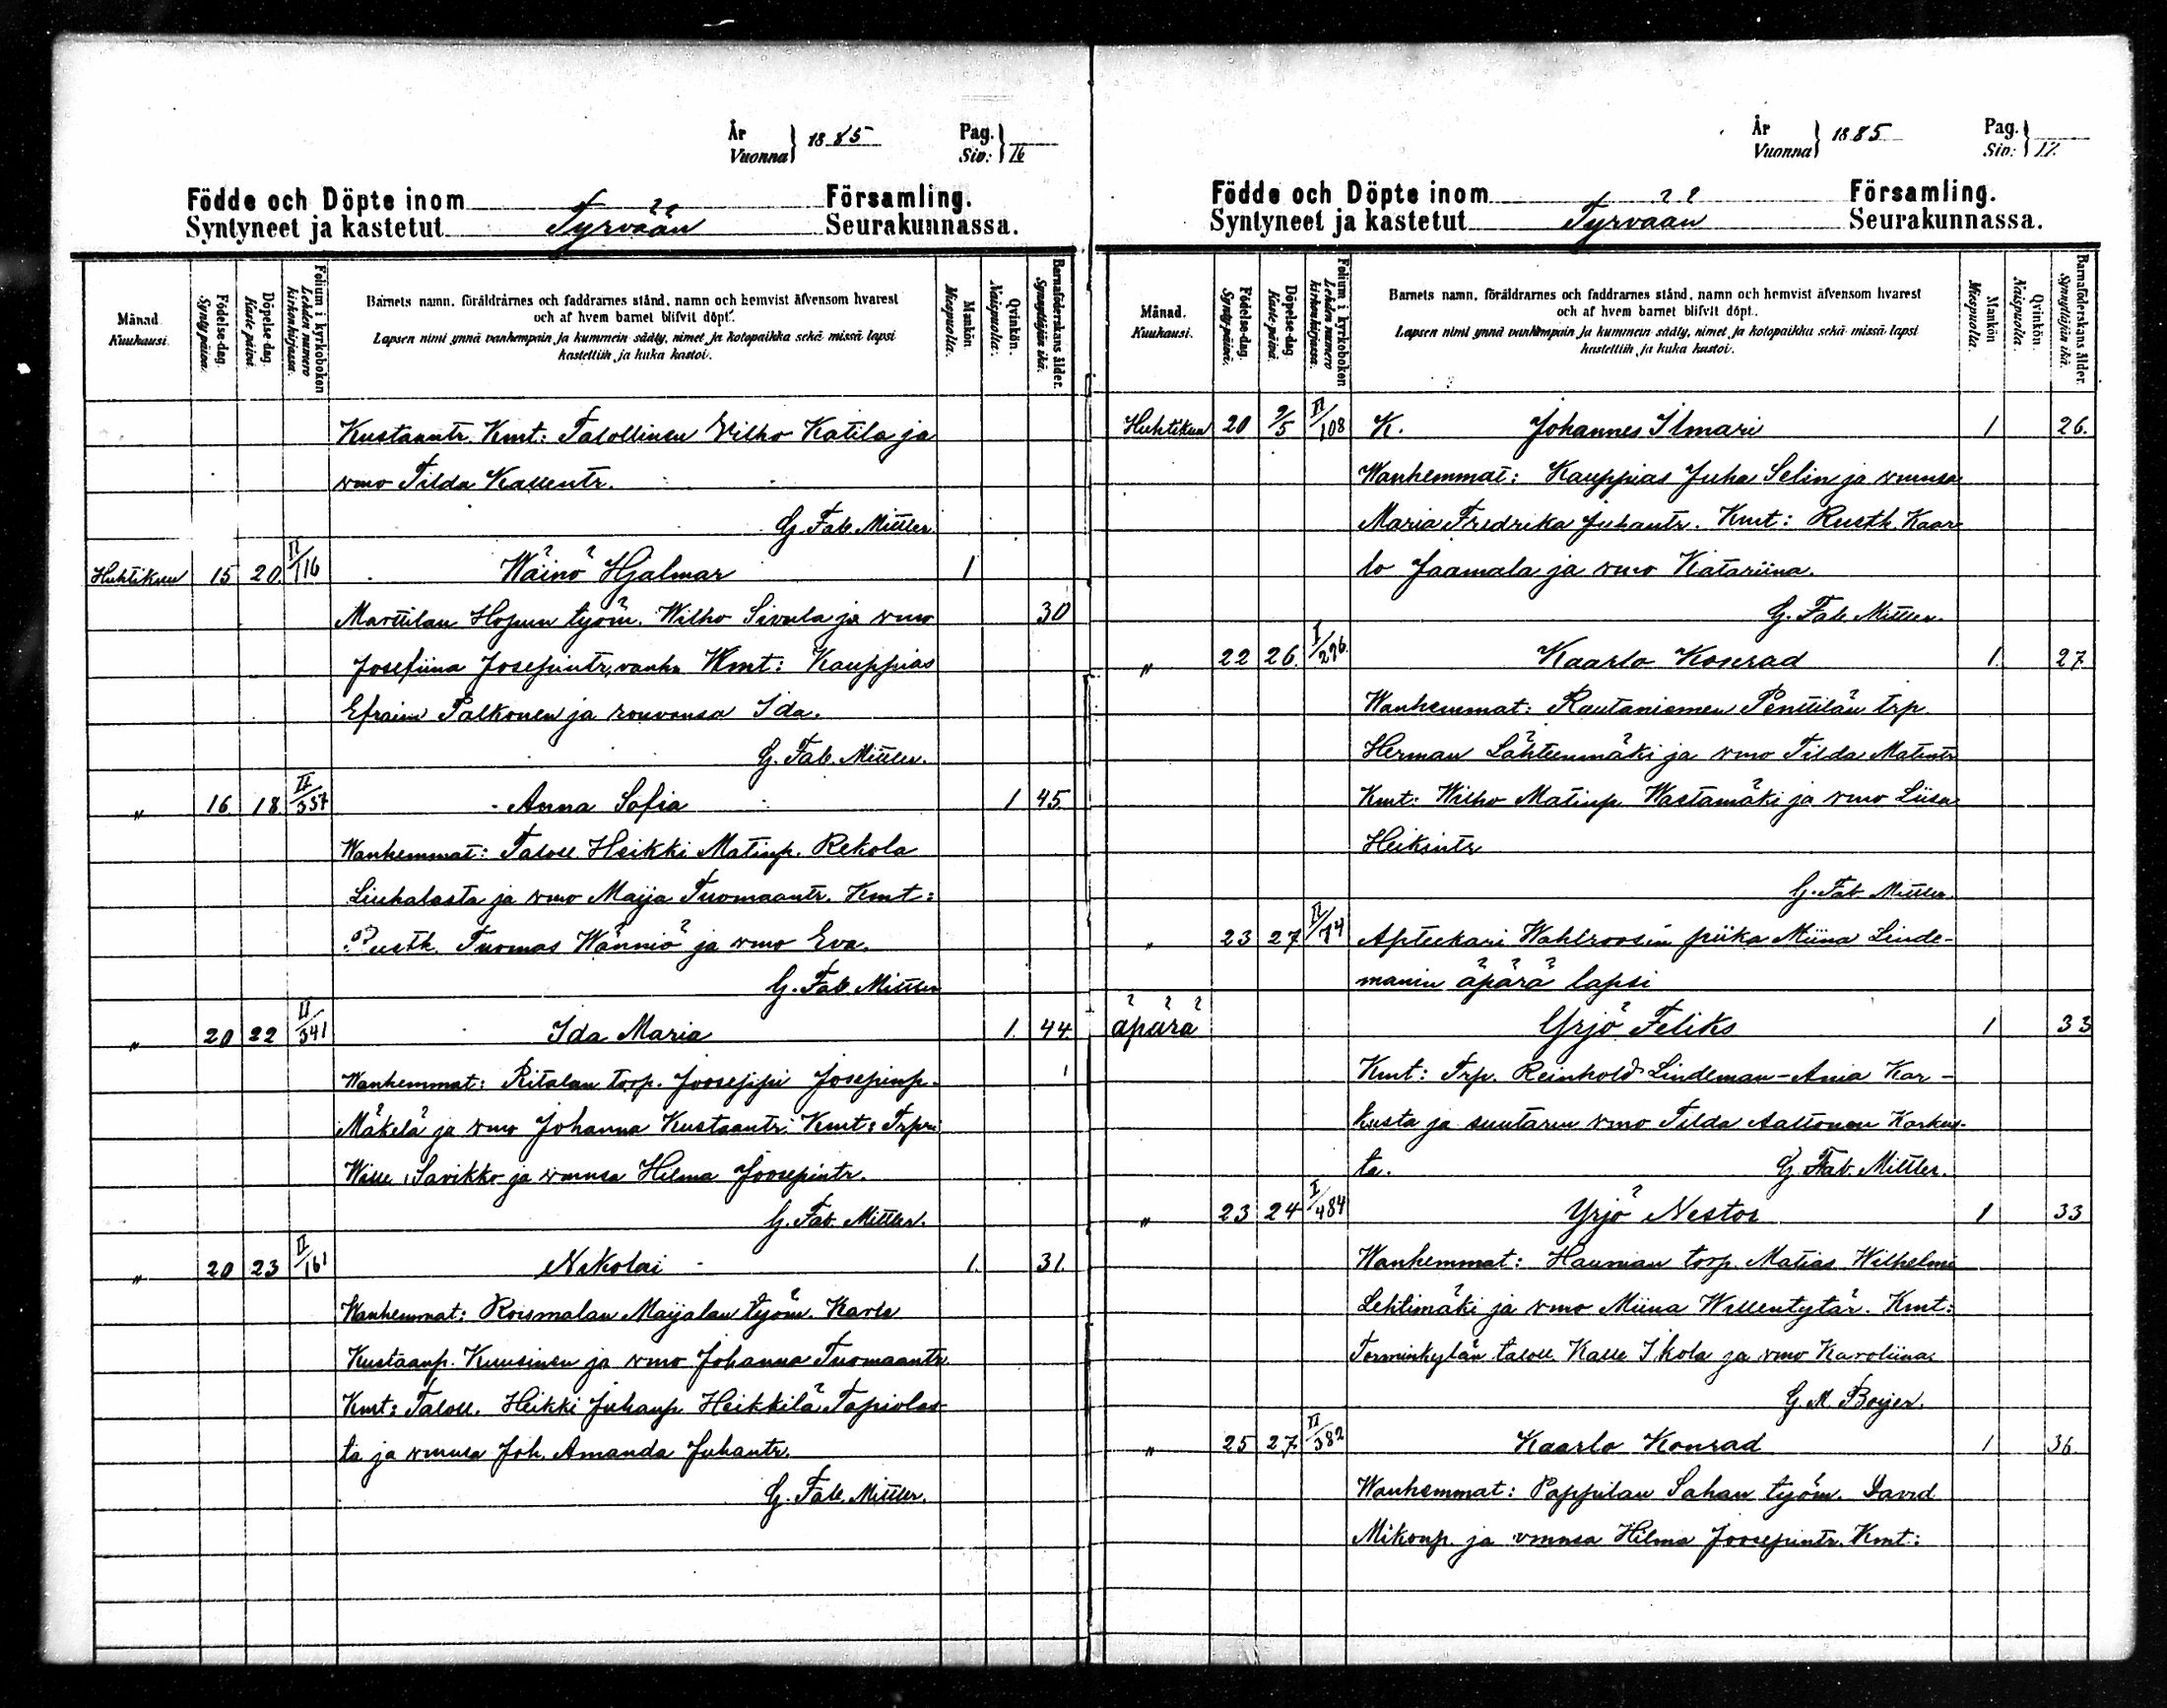 År
Vuonna } 1885 Pag.
Siv: } 16
Födde och Döpte inom Församling.
Syntyneet ja kastetut Tyrvään Seurakunnassa.
Månad.
Kuukausi.
Födelse-dag.
Synty päivä.
Döpelse-dag.
Kaste päivä.
Folium i kyrkoboken
Lehden numero
kirkonkirjassa.
Barnets namn, föräldrarnes och faddrarnes stånd, namn och hemvist äfvensom hvarest
och af hvem barnet blifvit döpt.
Lapsen nimi ynnä vanhempain ja kummein sääty, nimet ja kotopaikka sekä missä lapsi
kastettiin ja kuka kastoi.
Mankön.
Miespuolia.
Qvinkön.
Naispuolia.
Barnaföderskans ålder.
Synnyttäjän ikä.
Kustaantr. Kmt: Talollinen Vilho Katila ja
vmo Tilda Kallentr.
G. Fab. Mittler.
Huhtikuu 15 20. II/116 Wäinö Hjalmar 1
Marttilan Hopun työm. Wilho Sivula ja vmo 30
Josefiina Josepintr, vanh. Kmt: Kauppias
Efraim Palkonen ja rouvansa Ida.
G. Fab. Mittler.
" 16. 18. II/337 Anna Sofia 1 45.
Wanhemmat: Taloll. Heikki Matinp. Rekola
Liuhalasta ja vmo Maija Tuomaantr. Kmt:
Rusth. Tuomas Wänniö ja vmo Eva.
G. Fab. Mittler
" 20 22 II/341 Ida Maria 1. 44.
Wanhemmat: Ritalan torp. Jooseppi Josepinp.
Mäkelä ja vmo Johanna Kustaantr. Kmt: Trpri
Wille Savikko ja vmnsa Hilma Joosepintr.
G. Fab. Mittler.
" 20 23 II/161 Nikolai 1. 31.
Wanhemmat: Roismalan Maijalan työm. Karle
Kustaanp. Kuusinen ja vmo Johanna Tuomaantr.
Kmt: Taloll. Heikki Juhanp. Heikkilä Tapiolas-
ta ja vmnsa Joh. Amanda Juhantr.
G. Fab. Mittler.
År
Vuonna } 1885 Pag.
Siv: } 17.
Födde och Döpte inom Församling.
Syntyneet ja kastetut Tyrvään Seurakunnassa.
Månad.
Kuukausi.
Födelse-dag.
Synty päivä.
Döpelse-dag.
Kaste päivä.
Folium i kyrkoboken
Lehden numero
kirkonkirjassa.
Barnets namn, föräldrarnes och faddrarnes stånd, namn och hemvist äfvensom hvarest
och af hvem barnet blifvit döpt.
Lapsen nimi ynnä vanhempain ja kummein sääty, nimet ja kotopaikka sekä missä lapsi
kastettiin ja kuka kastoi.
Mankön
Miespuolia.
Qvinkön.
Naispuolia.
Barnaföderskans ålder.
Synnyttäjän ikä.
Huhtikuu 20 9/5 II/108 K. Johannes Ilmari 1 26.
Wanhemmat: Kauppias Juha Selin ja vmnsa
Maria Fredrika Juhantr. Kmt: Rusth. Kaar-
lo Jaamala ja vmo Katariina.
G. Fab. Mittler.
" 22 26. I/276. Kaarlo Konrad 1. 27
Wanhemmat: Rautaniemen Penttilän trp.
Herman Lähteenmäki ja vmo Tilda Matintr
Kmt: Wilho Matinp. Wastamäki ja vmo Liisa
Heikintr
G. Fab. Mittler.
" 23 27 II/74 Apteekari Wahlroosin piika Miina Linde-
manin äpärä lapsi
äpärä Yrjö Feliks 1 33
Kmt: Trp. Reinhold Lindeman-Ania Kar-
kusta ja suutarin vmo Tilda Aaltonen Karkus-
ta. G. Fab. Mittler.
" 23 24 I/484 Yrjö Nestor 1 33
Wanhemmat: Haunian torp. Matias Wilhelmi
Lehtimäki ja vmo Miina Willentytär. Kmt:
Torminkylän taloll. Kalle Ikola ja vmo Karoliina.
G. A. Boijer.
" 25 27. II/382 Kaarlo Konrad 1 36.
Wanhemmat: Pappilan Sahan työm. David
Mikonp. ja vmnsa Hilma Joosepintr. Kmt: